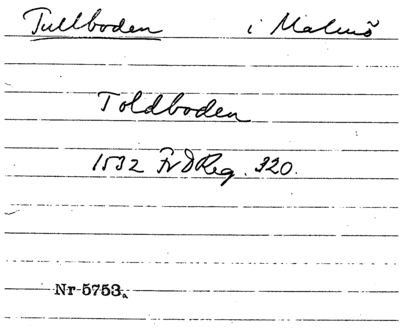 Tullboden i Malmö
Toldboden
1532 Fr D Reg. 320.
Nr 5753.